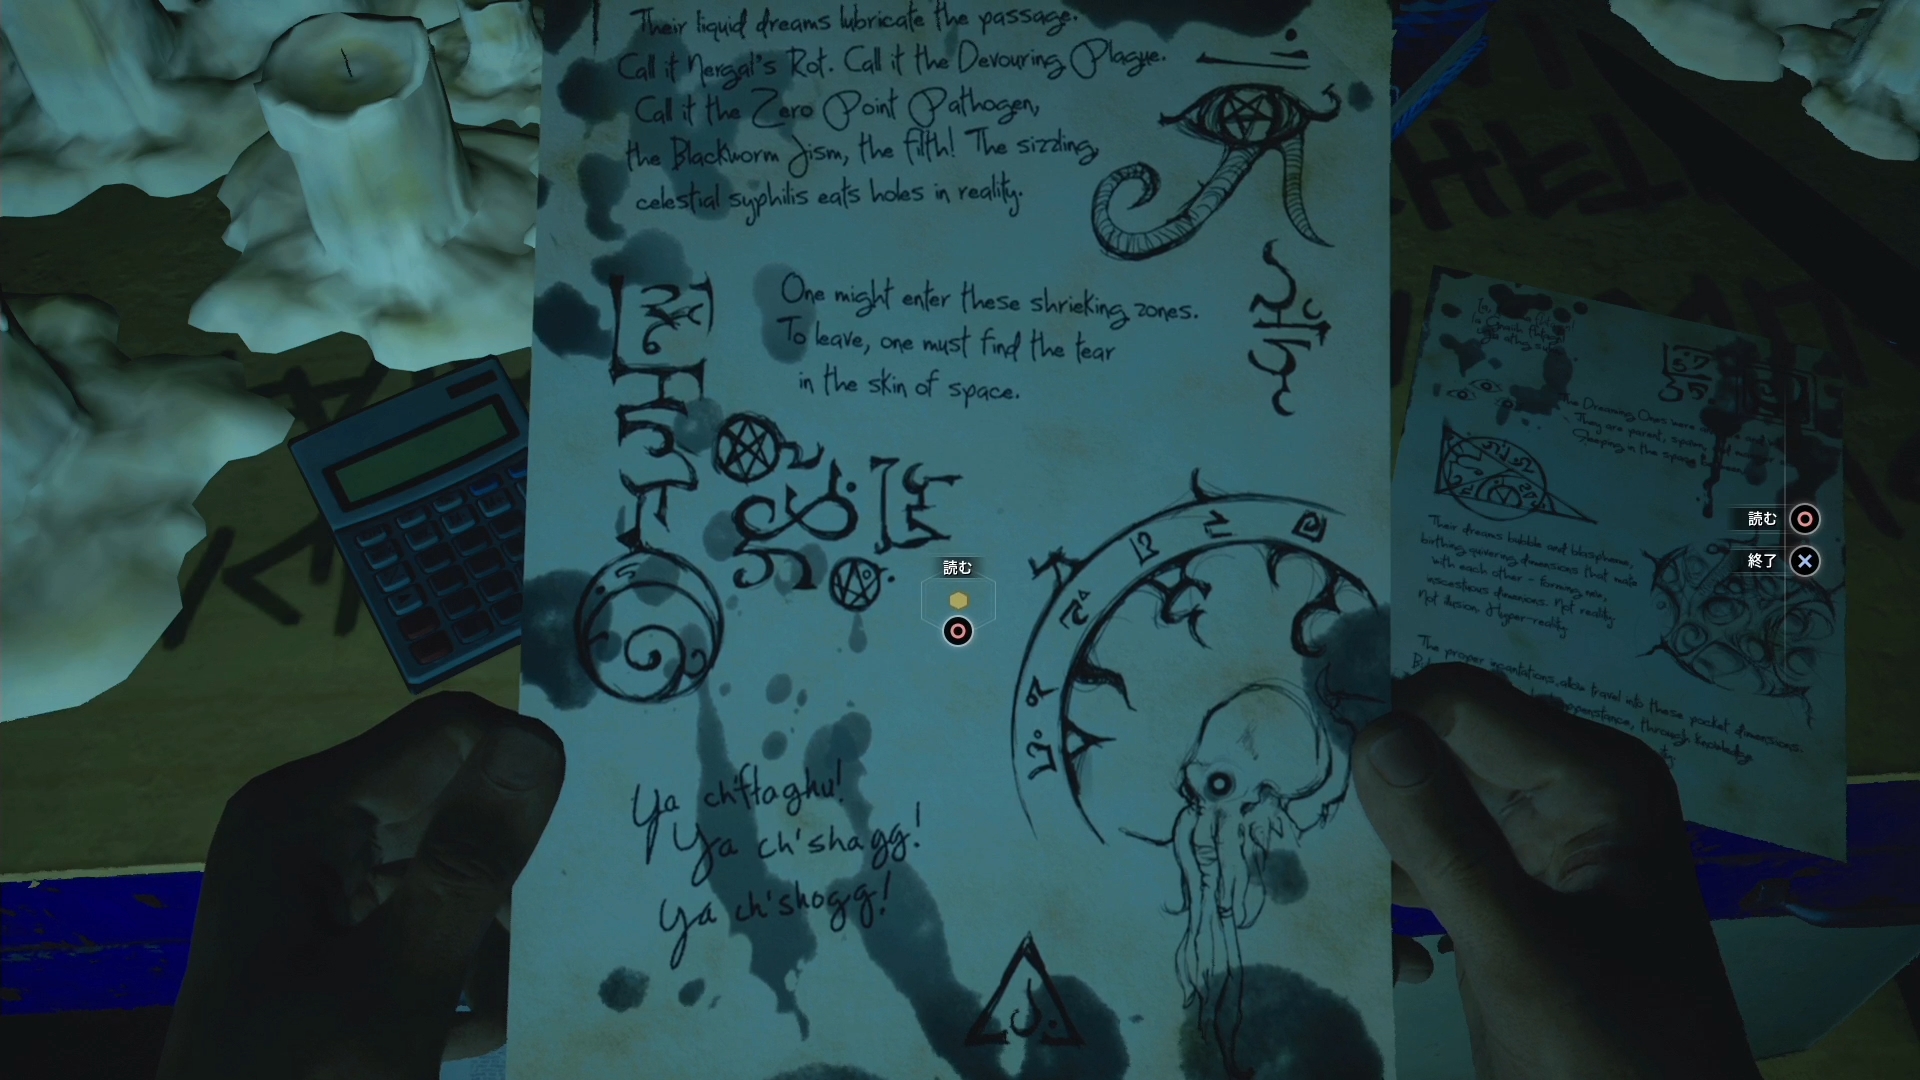 Their liquid dreams lubricate the passage.
Call it Nergal's Rot. Call it the Devouring Plague.
Call it the Zero Point Pathogen,
the Blackworm Jism, the filth! The sizzling,
celestial syphilis eats holes in reality.
One might enter these shrieking zones.
To leave, one must find the tear
in the skin of space.
Ya ch'ftaghu!
Ya ch'shagg!
Ya ch'shogg!
読む
読む
終了
The Dreaming Ones were
They are parent, spawn, and
Sleeping in the spaces between
Their dreams bubble and blaspheme,
birthing quivering dimensions that mate
with each other - forming new,
incestuous dimensions. Not reality.
Not illusion. Hyper-reality.
The proper incantations allow travel into these pocket dimensions.
happenstance, through knowledge